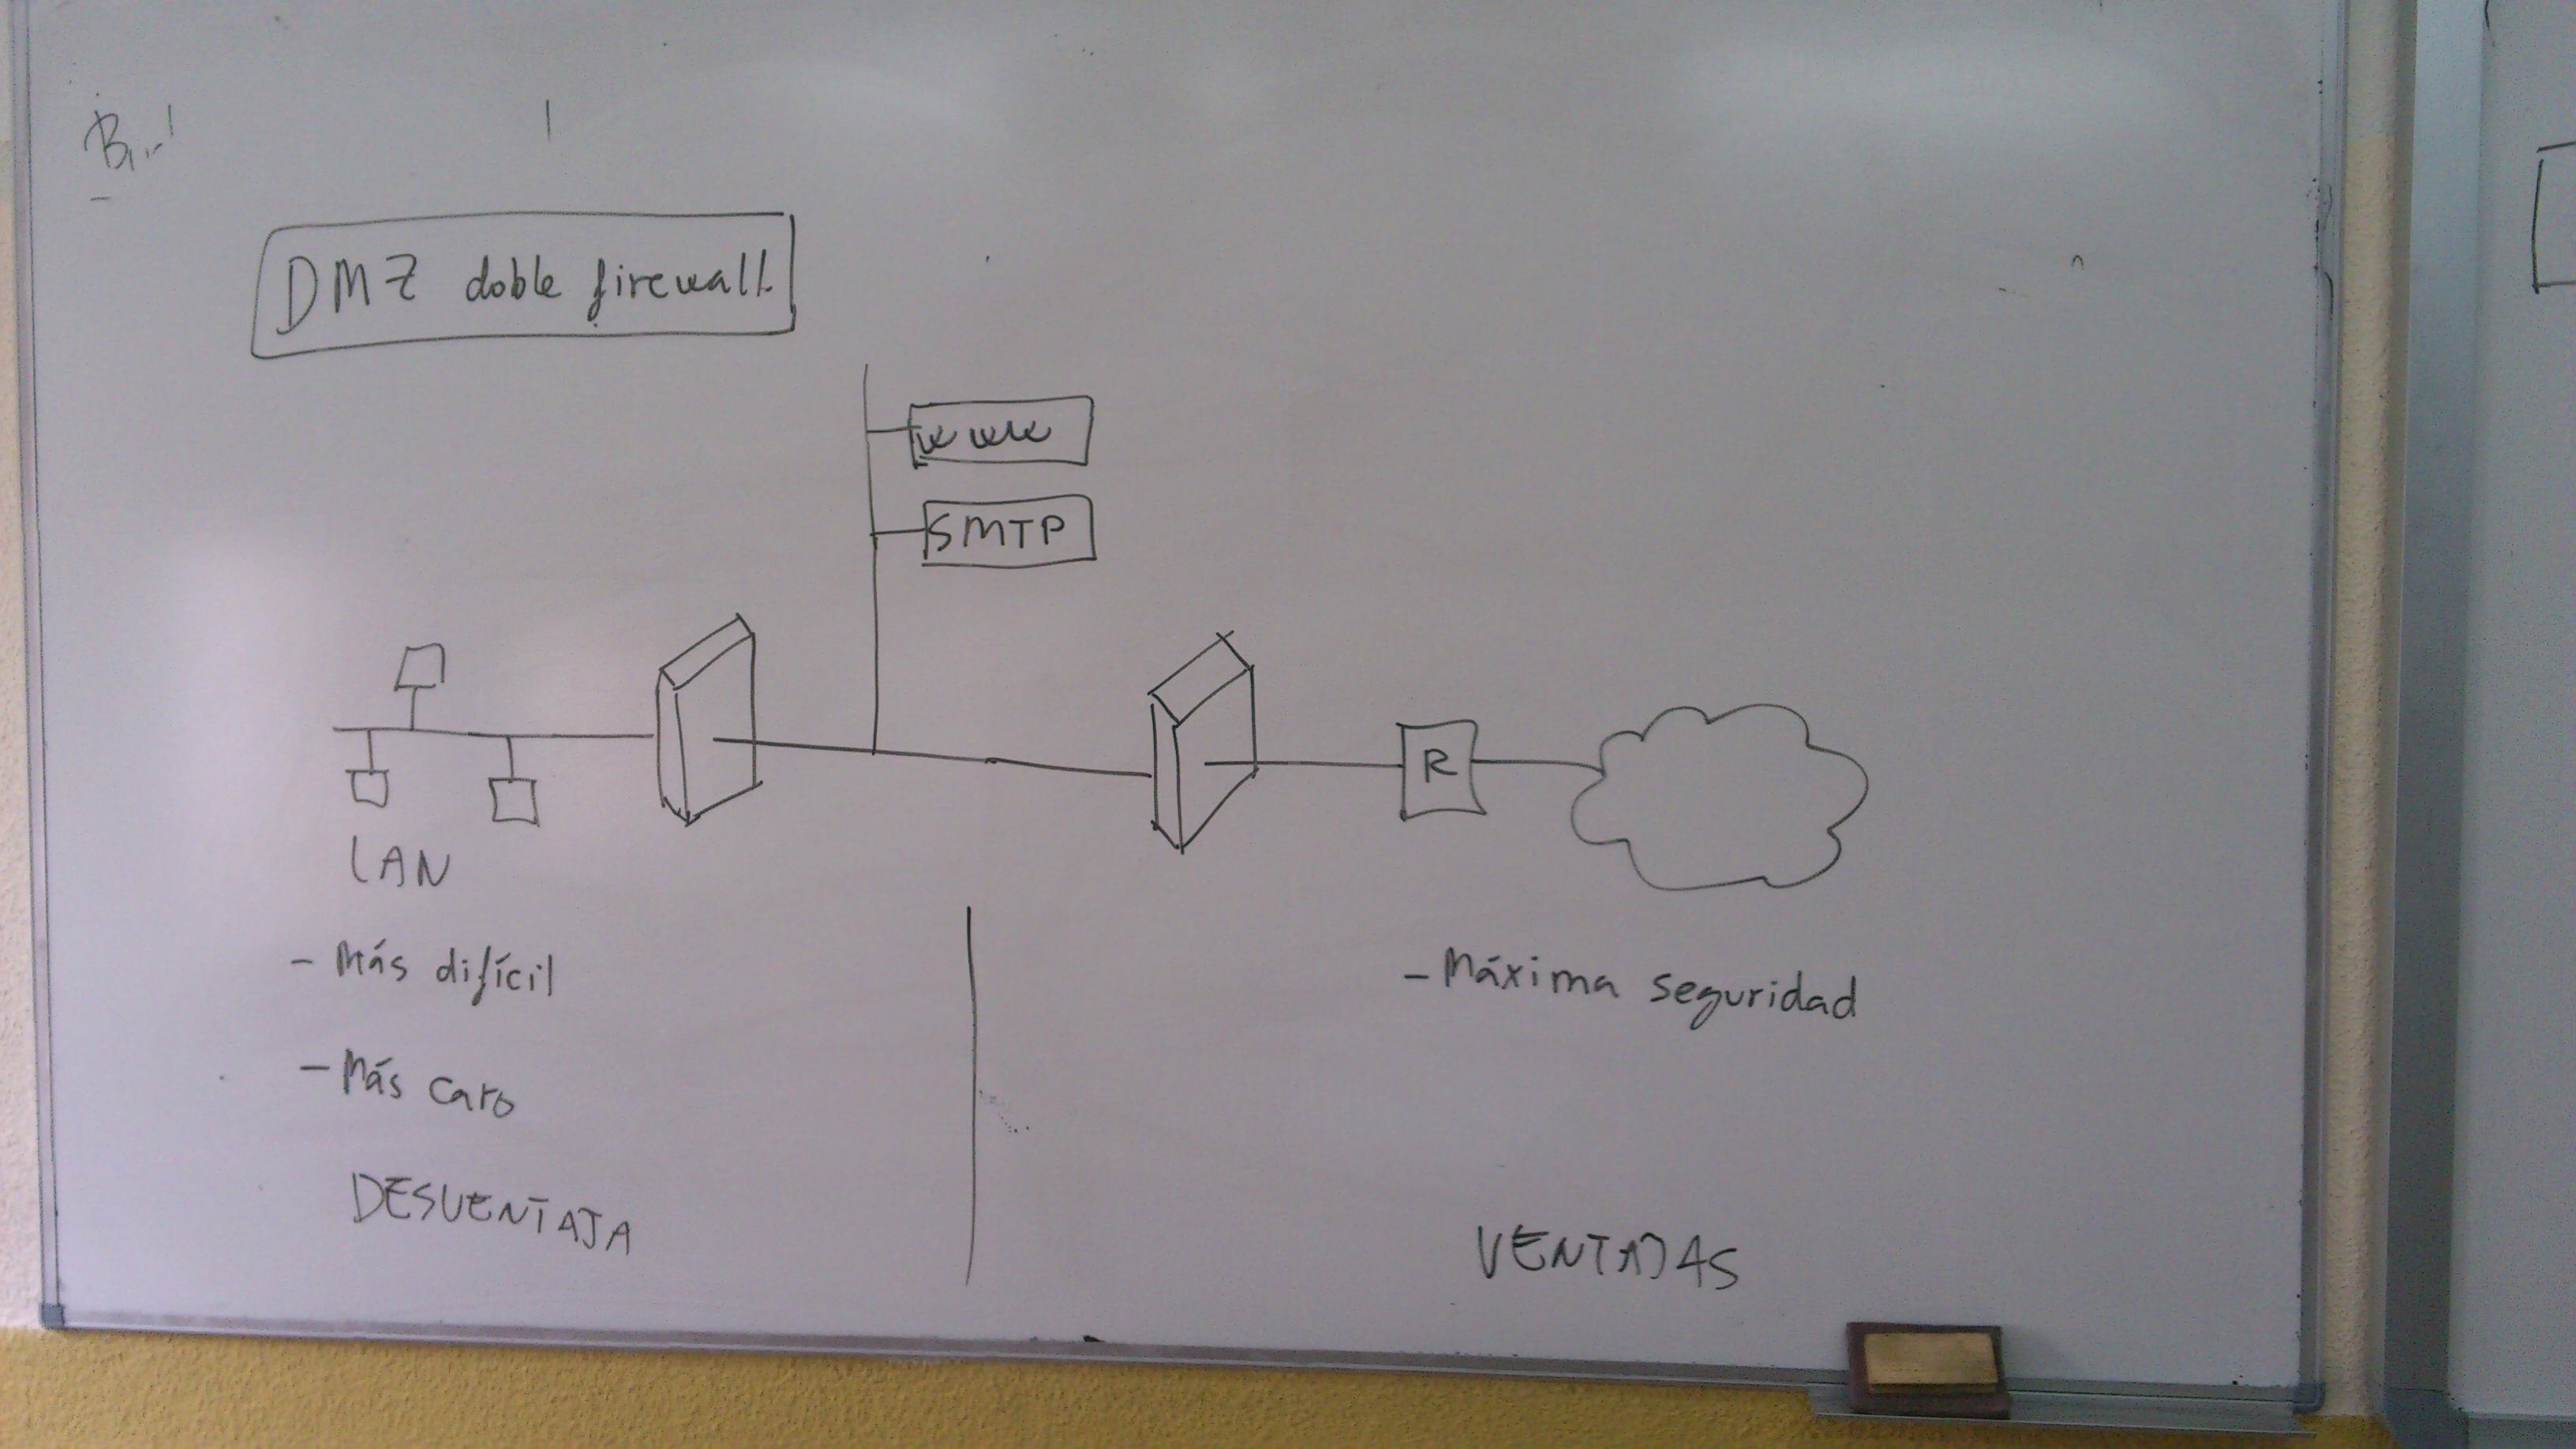 DMZ doble firewall
www
SMTP
R
LAN
- Más difícil
- Más caro
DESVENTAJA
- Máxima seguridad
VENTAJAS